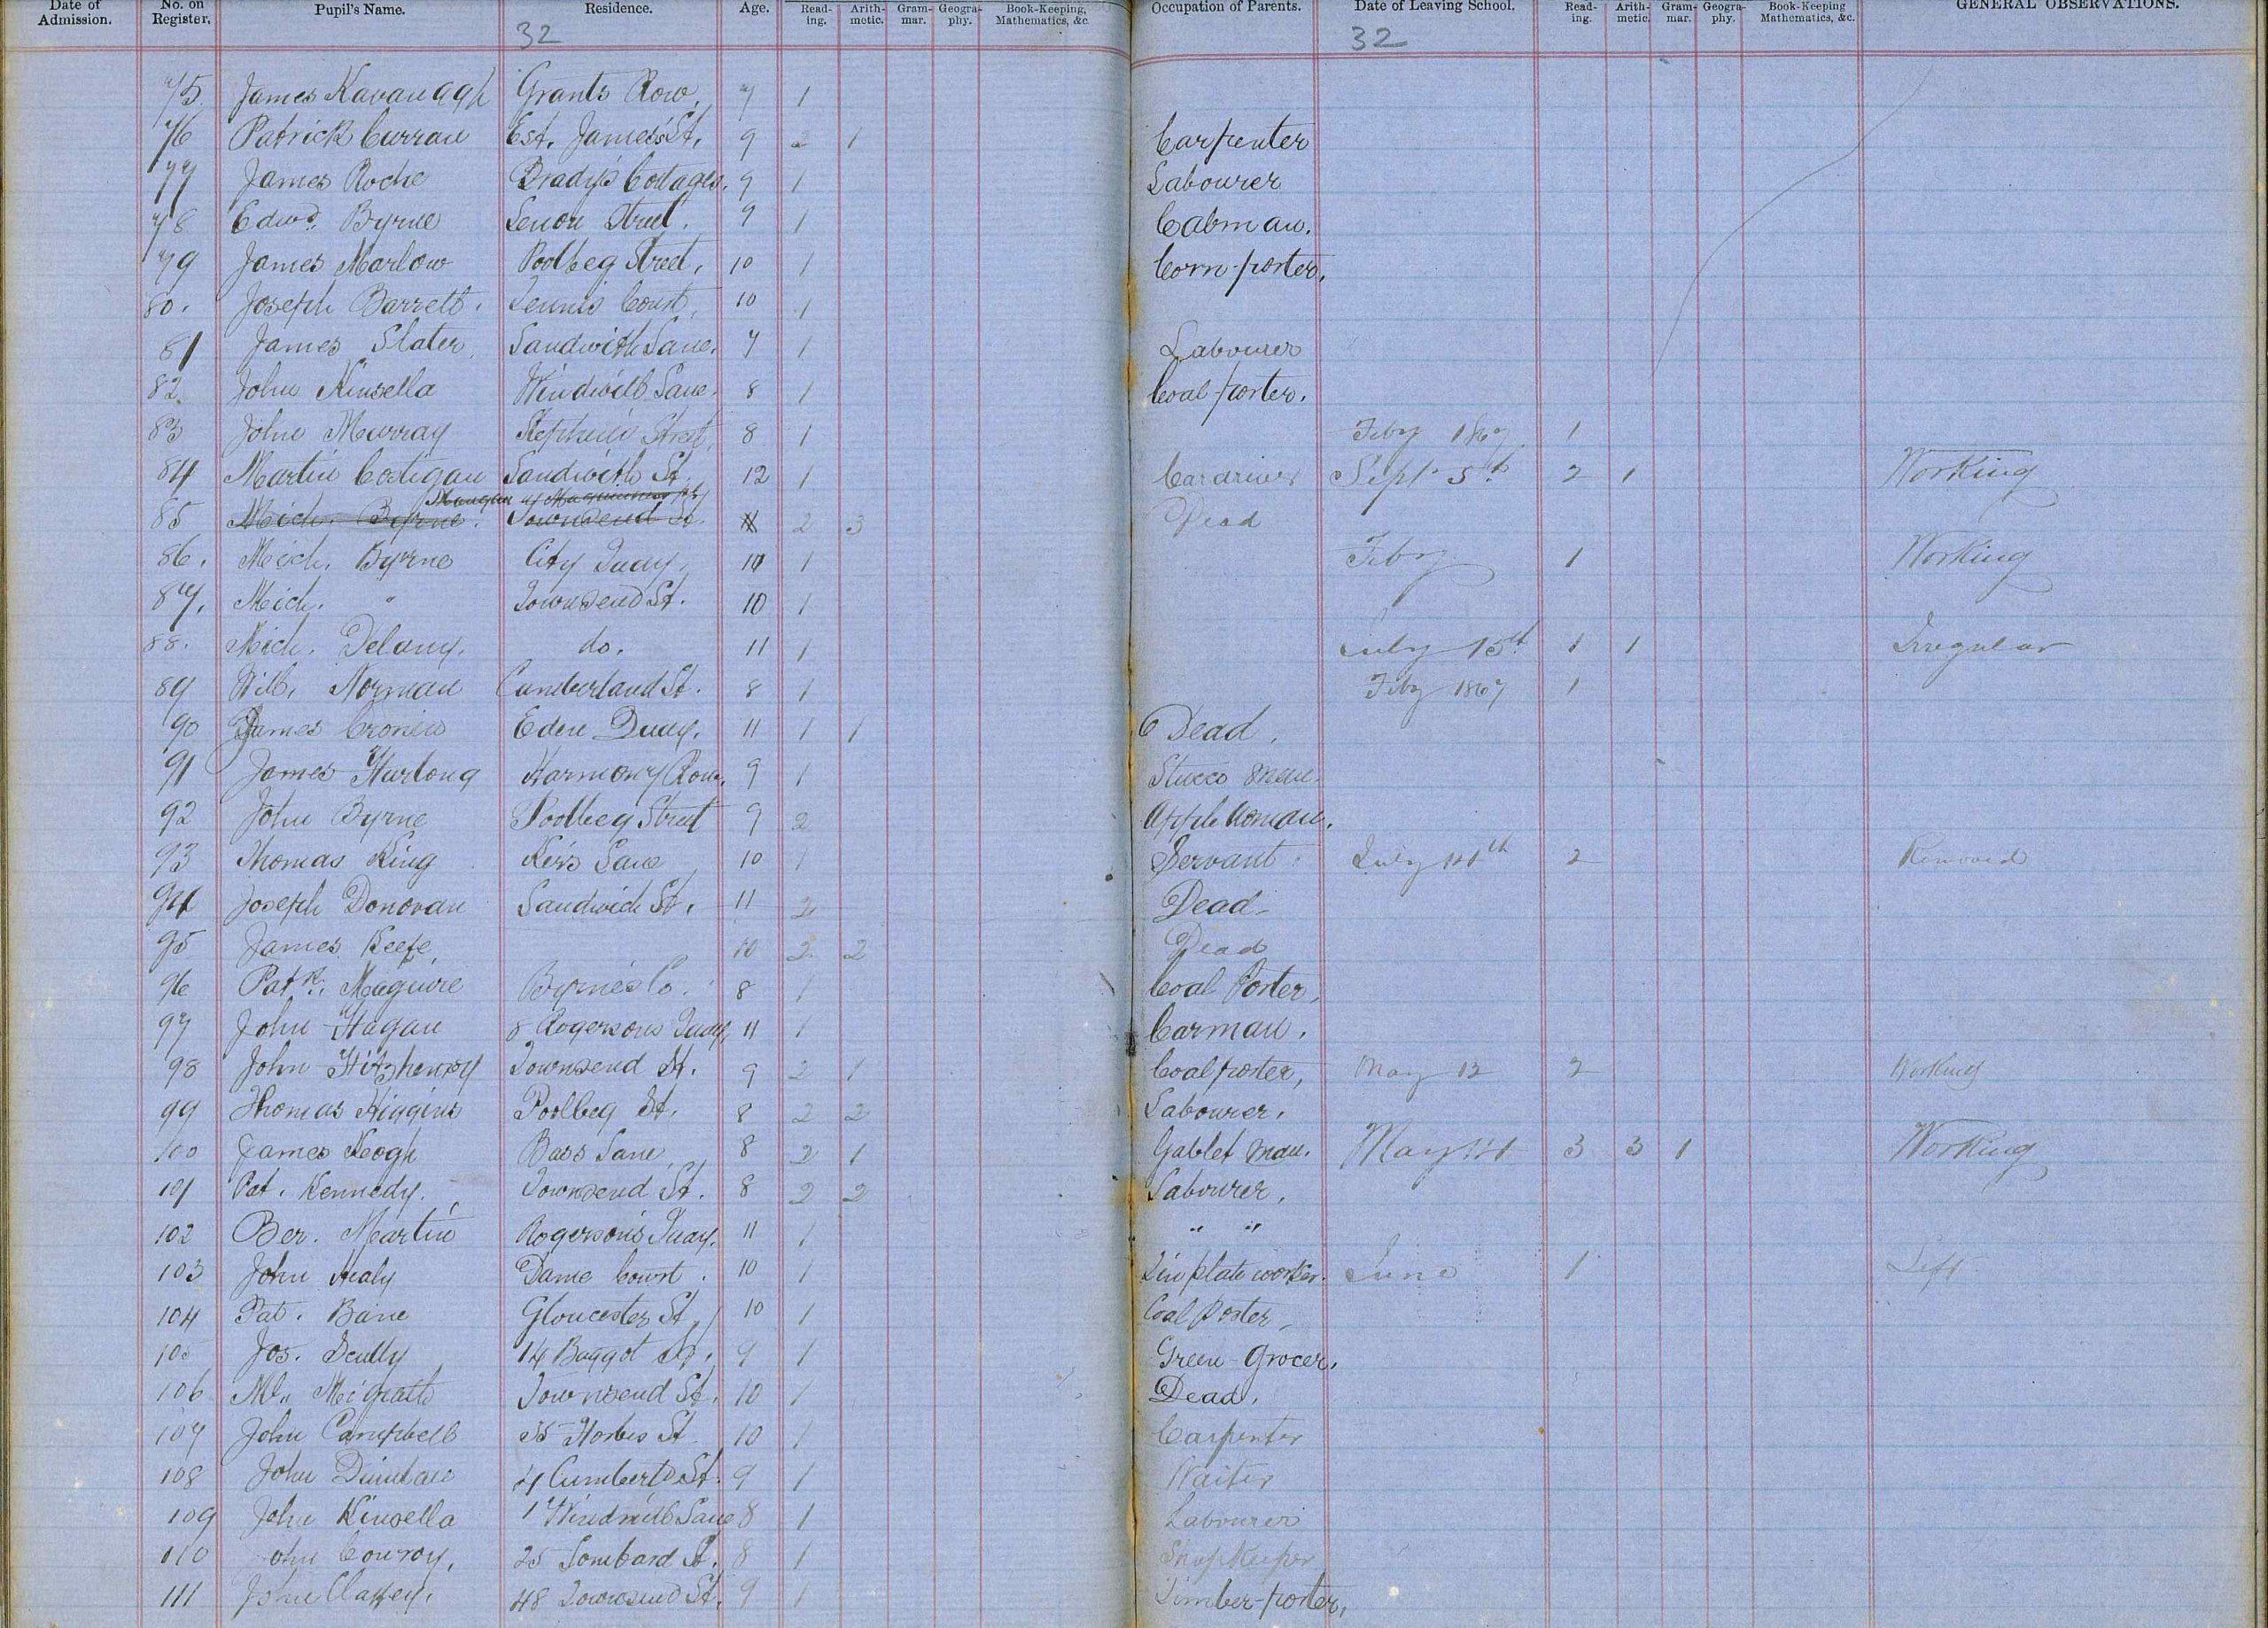 Date of Admission. No. on Register, Pupil's Name. Residence. Age. Read-ing. Arith-metic. Gram-mar. Geogra-phy. Book-Keeping, Mathematics, &c. Occupation of Parents. Date of Leaving School. Read-ing. Arith-metic. Gram-mar. Geogra-phy. Book-Keeping Mathematics, &c. GENERAL OBSERVATIONS.
32 32
75. James Kavanagh Grants Row, 7 1
76 Patrick Curran Est. James's St, 9 2 1 Carpenter
77 James Roche Brady's Cottages. 9 1 Labourer
78 Edwd. Byrne Street. 9 1 Cabman.
79 James Marlow Poolbeg Street, 10 1 Corn-porter,
80. Joseph Barrett. Tennis Court, 10 1
81 James Slater, Sandwith Lane, 7 1 Labourer
82 John Kinsella Windmill Lane. 8 1 Coal-porter.
83 John Murray Stephen's Street, 8 1 Feby 1867 1
84 Martin Costigan Sandwith St 12 1 Cardriver Sept 5th 2 1 Working
85 Mich. Byrne. Townsend St. 2 3 Dead
86. Mich. Byrne City Quay, 10 1 Feby 1 Working
87. Mich. " Townsend St. 10 1
88. Mich. Delany. do. 11 1 July 15th 1 1 Irregular
89 Will. Norman Cumberland St. 8 1 Feby 1867 1
90 James Cronin Eden Quay. 11 1 1 Dead,
91 James Hurlong Harmony Row, 9 1 Stucco man.
92 John Byrne Poolbeg Street 9 2 Apple woman.
93 Thomas King Kers Lane 10 1 Servant. July 11th 2 Removed
94 Joseph Donovan Sandwich St. 11 2 Dead
95 James Keefe, 10 2 2 Dead
96 Patk. Maguire Byrne's Co. 8 1 Coal Porter,
97 John Hagan 8 Rogersons Quay, 11 1 Carman.
98 John Fitzhenry Townsend St. 9 2 1 Coalporter, May 12 2 Working
99 Thomas Higgins Poolbeg St, 8 2 2 Labourer,
100 James Keogh Bass Lane 8 2 1 Gablet man. May 3 3 1 Working
101 Pat. Kennedy. Townsend St. 8 2 2 Labourer,
102 Ber. Martin Rogerson's Quay. 11 1 " "
103 John Healy Dame Court. 10 1 Tin plate worker. June 1 Left
104 Pat. Bane Gloucester St, 10 1 Coal Porter,
105 Jos. Scully 14 Baggot St, 9 1 Green-Grocer.
106 Ml. McGrath Townsend St, 10 1 Dead,
107 John Campbell 35 Forbes St 10 1 Carpenter
108 John 4 Cumberld St. 9 1 Waiter
109 John Kinsella 1 Windmill Lane 8 1 Labourer
110 John Conroy, 25 Lombard St. 8 1 Shop Keeper
111 John Claffey. 48 Townsend St. 9 1 Timber-porter,